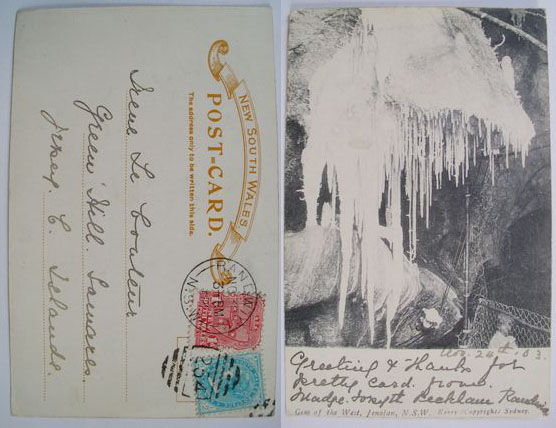 NEW SOUTH WALES
POST-CARD.
The address only to be written this side.
Irene Le Couteur
Green Hill. Samares.
Jersey C. Islands.
N.S.W
Nov. 24th 03.
Greeting & Thanks for
pretty card. from
Madge Forsyth
Gem of the West, Jenolan, N.S.W. Kerry (Copyright) Sydney.